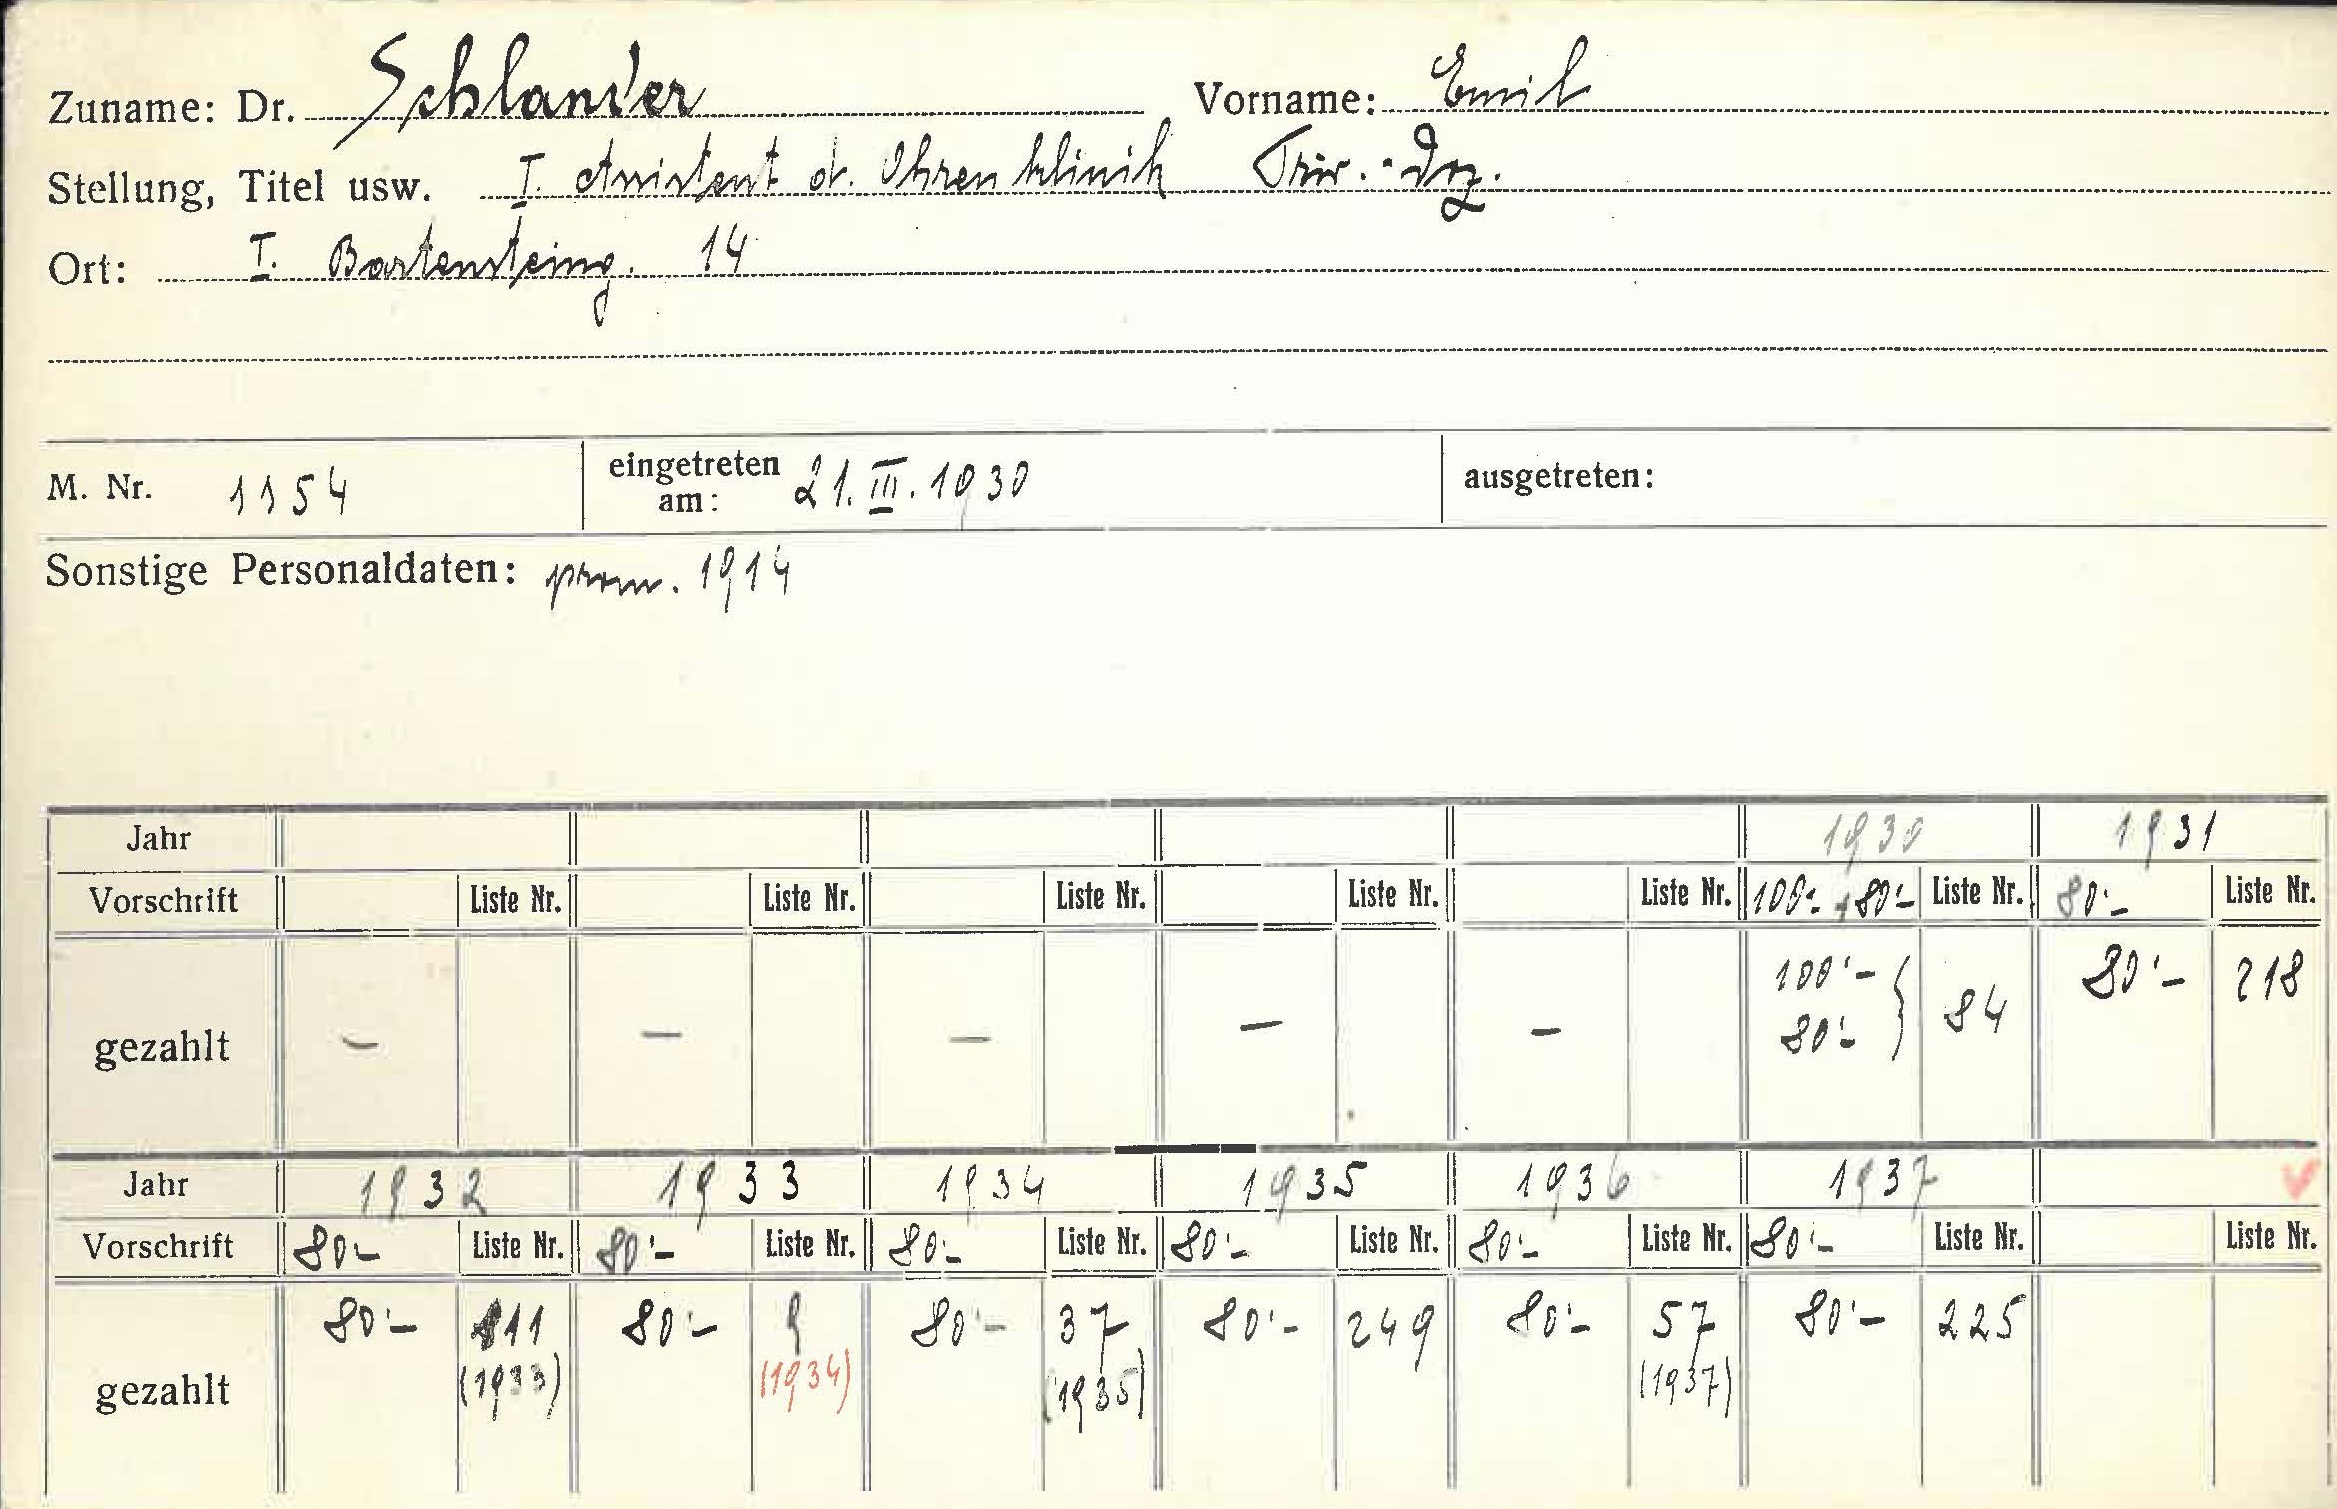 Zuname: Dr. Schlander Vorname: Emil
Stellung, Titel usw. I. Assistent d. Ohrenklinik Priv.-Doz.
Ort: I. Bartensteing. 14
M. Nr. 1154 eingetreten am: 21. III. 1930 ausgetreten:
Sonstige Personaldaten: prom. 1914
Jahr 1930 1931
Vorschrift Liste Nr. Liste Nr. Liste Nr. Liste Nr. Liste Nr. 100'- + 80'- Liste Nr. 80'- Liste Nr.
gezahlt – – – – – 100'- 80'- } 84 80'- 218
Jahr 1932 1933 1934 1935 1936 1937
Vorschrift 80- Liste Nr. 80'- Liste Nr. 80'- Liste Nr. 80'- Liste Nr. 80'- Liste Nr. 80'- Liste Nr. Liste Nr.
gezahlt 80'- 11 80'- 9 80'- 37 80'- 249 80'- 57 80'- 225
(1933) (1934) (1935) (1937)